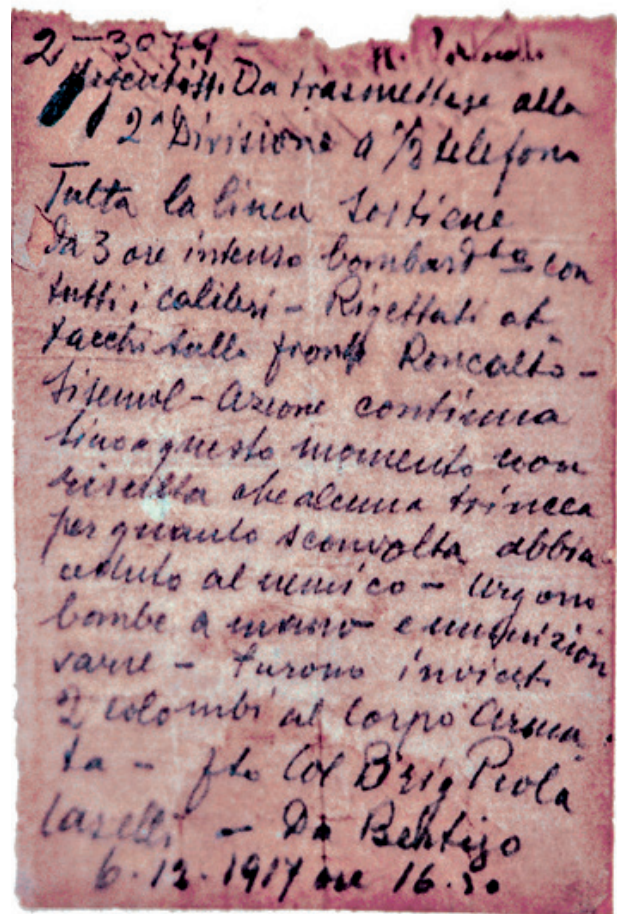 2 - 3079 -
Urgentiss. Da trasmettere alla
2ª Divisione a ½ telefono
Tutta la linea sostiene
da 3 ore intenso bombardto con
tutti i calibri - Rigettati at
tacchi sulla fronte Roncalto -
Sisemol - Azione continua
sino a questo momento non
risulta che alcuna trincea
per quanto sconvolta abbia
ceduto al nemico - Urgono
bombe a mano e munizioni
varie - furono inviati
2 colombi al Corpo Arma
ta - fto Col Brig Piola
Caselli - Da Bertigo
6.12.1917 ore 16.30